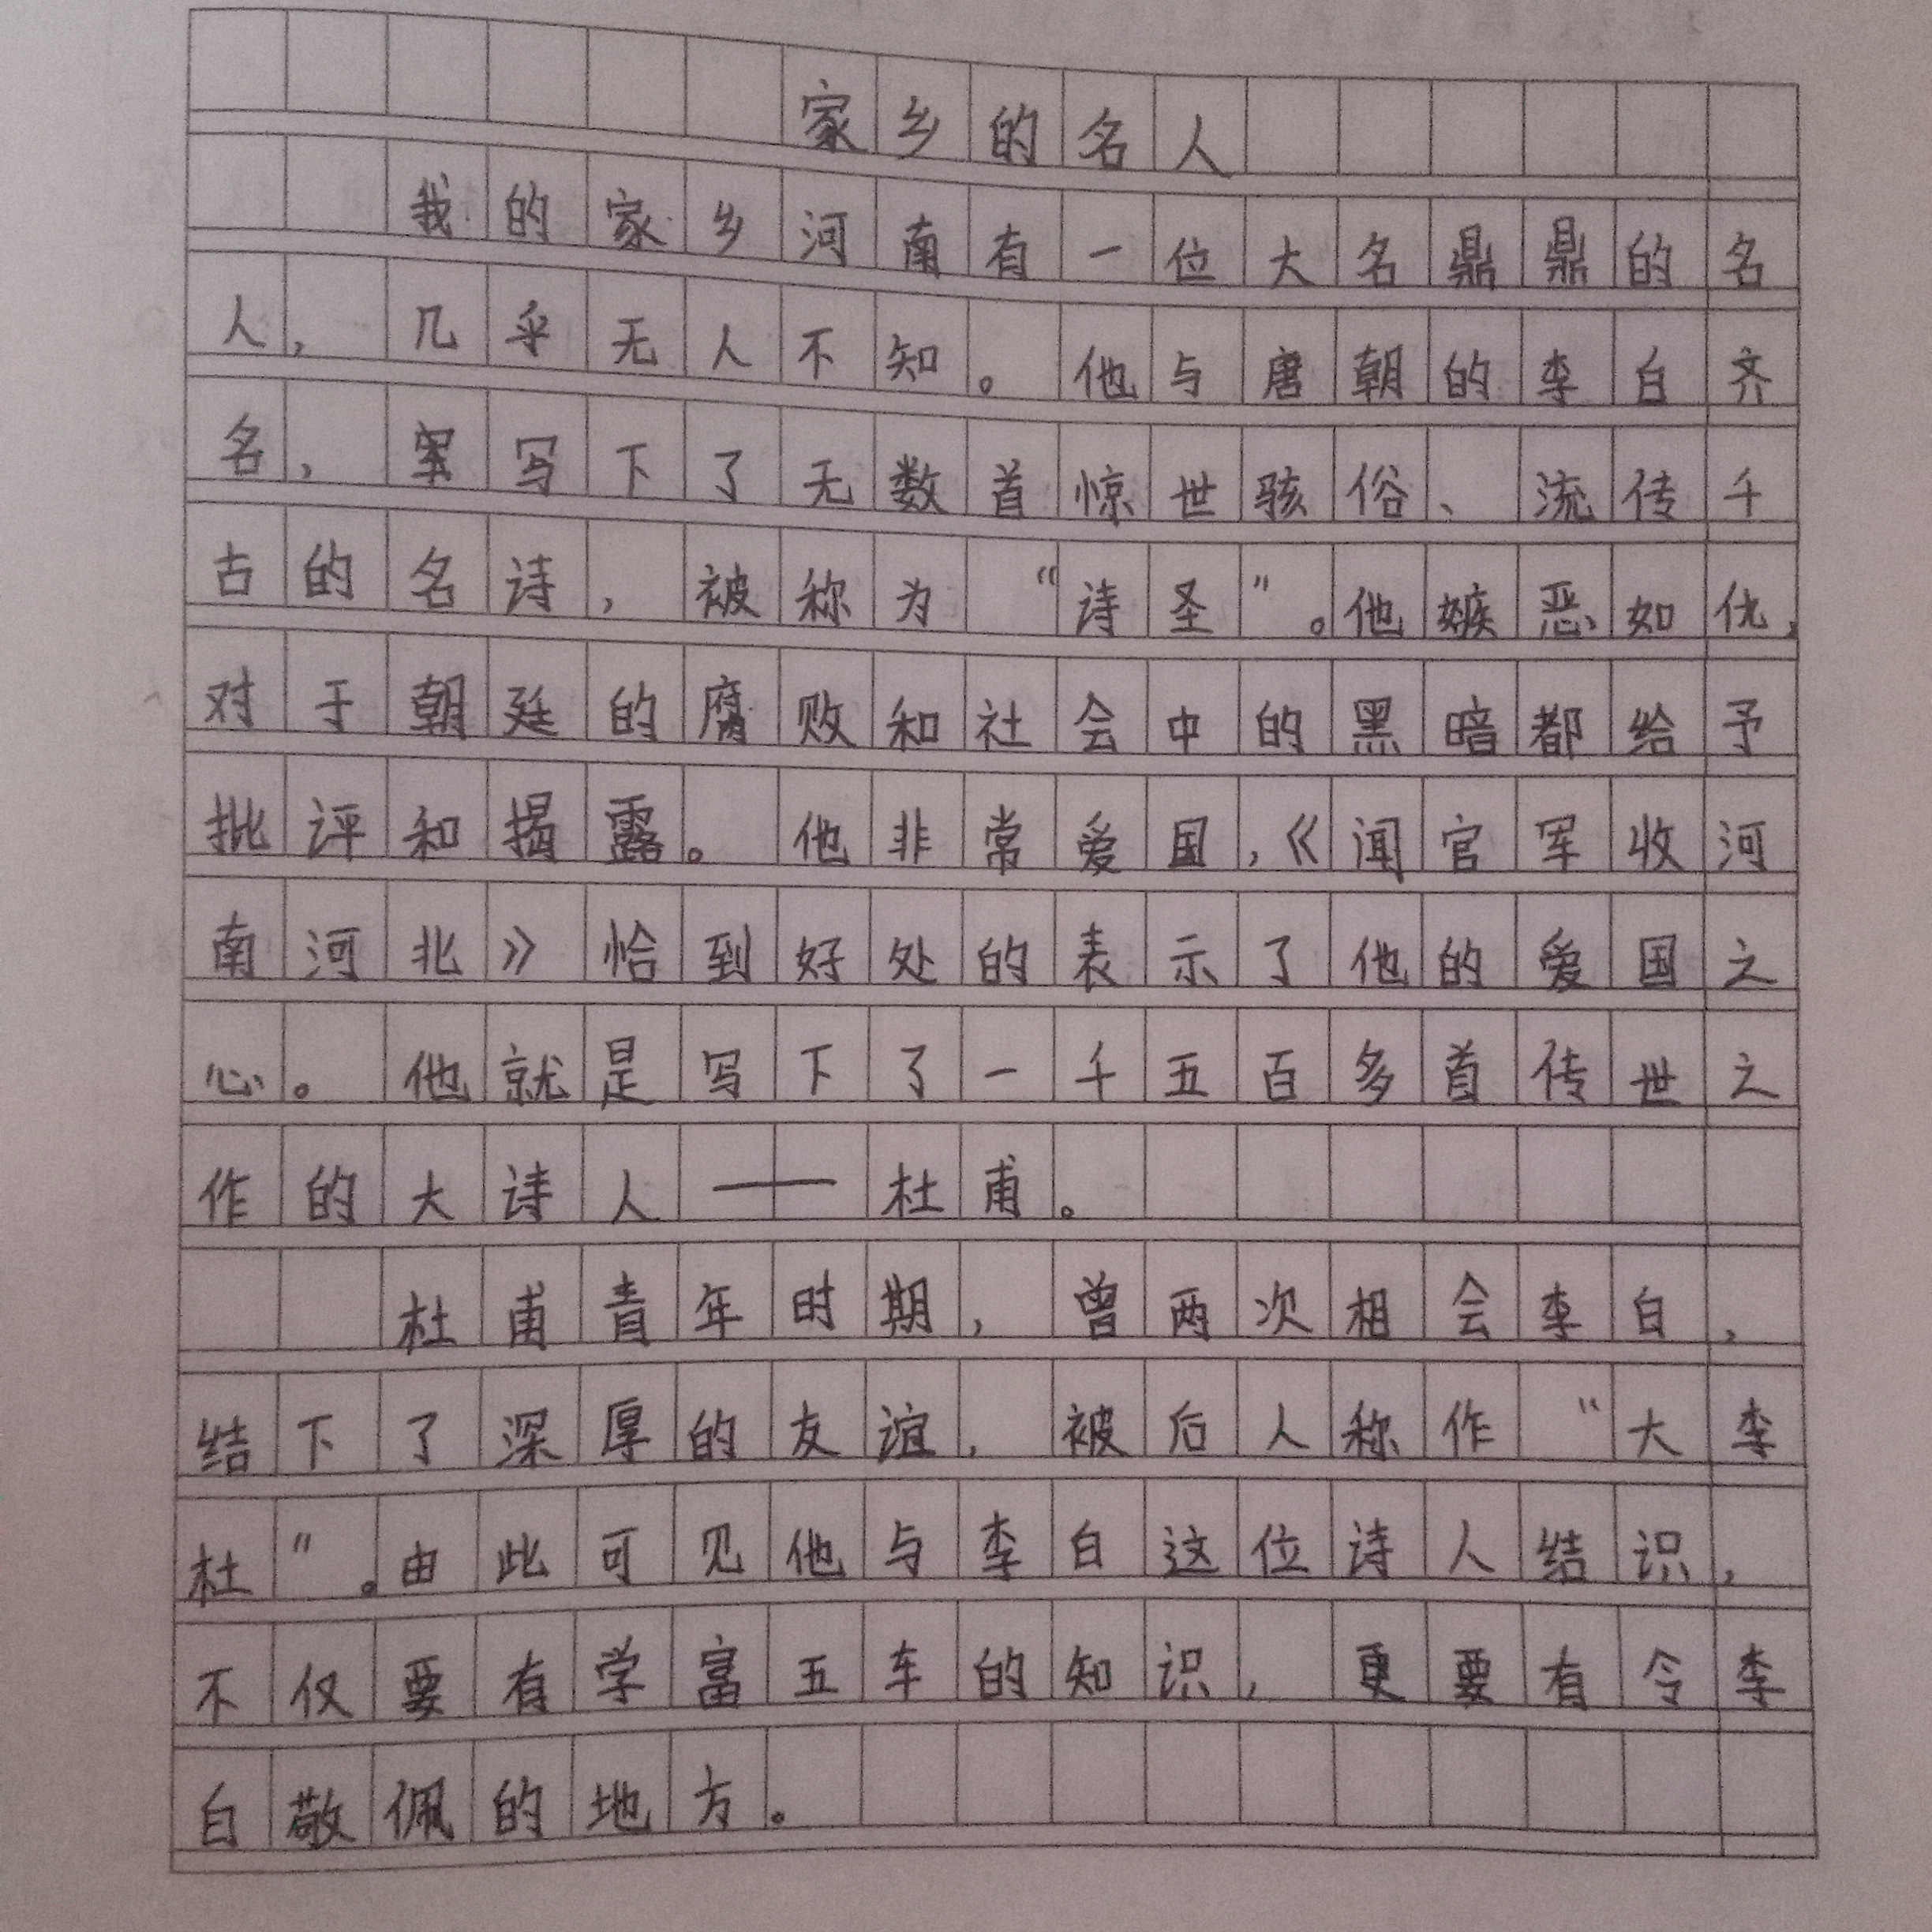 家乡的名人
我的家乡河南有一位大名鼎鼎的名
人，几乎无人不知。他与唐朝的李白齐
名，写下了无数首惊世骇俗、流传千
古的名诗，被称为“诗圣”。他嫉恶如仇，
对于朝廷的腐败和社会中的黑暗都给予
批评和揭露。他非常爱国，《闻官军收河
南河北》恰到好处的表示了他的爱国之
心。他就是写下了一千五百多首传世之
作的大诗人——杜甫。
杜甫青年时期，曾两次相会李白，
结下了深厚的友谊，被后人称作“大李
杜”。由此可见他与李白这位诗人结识，
不仅要有学富五车的知识，更要有令李
白敬佩的地方。